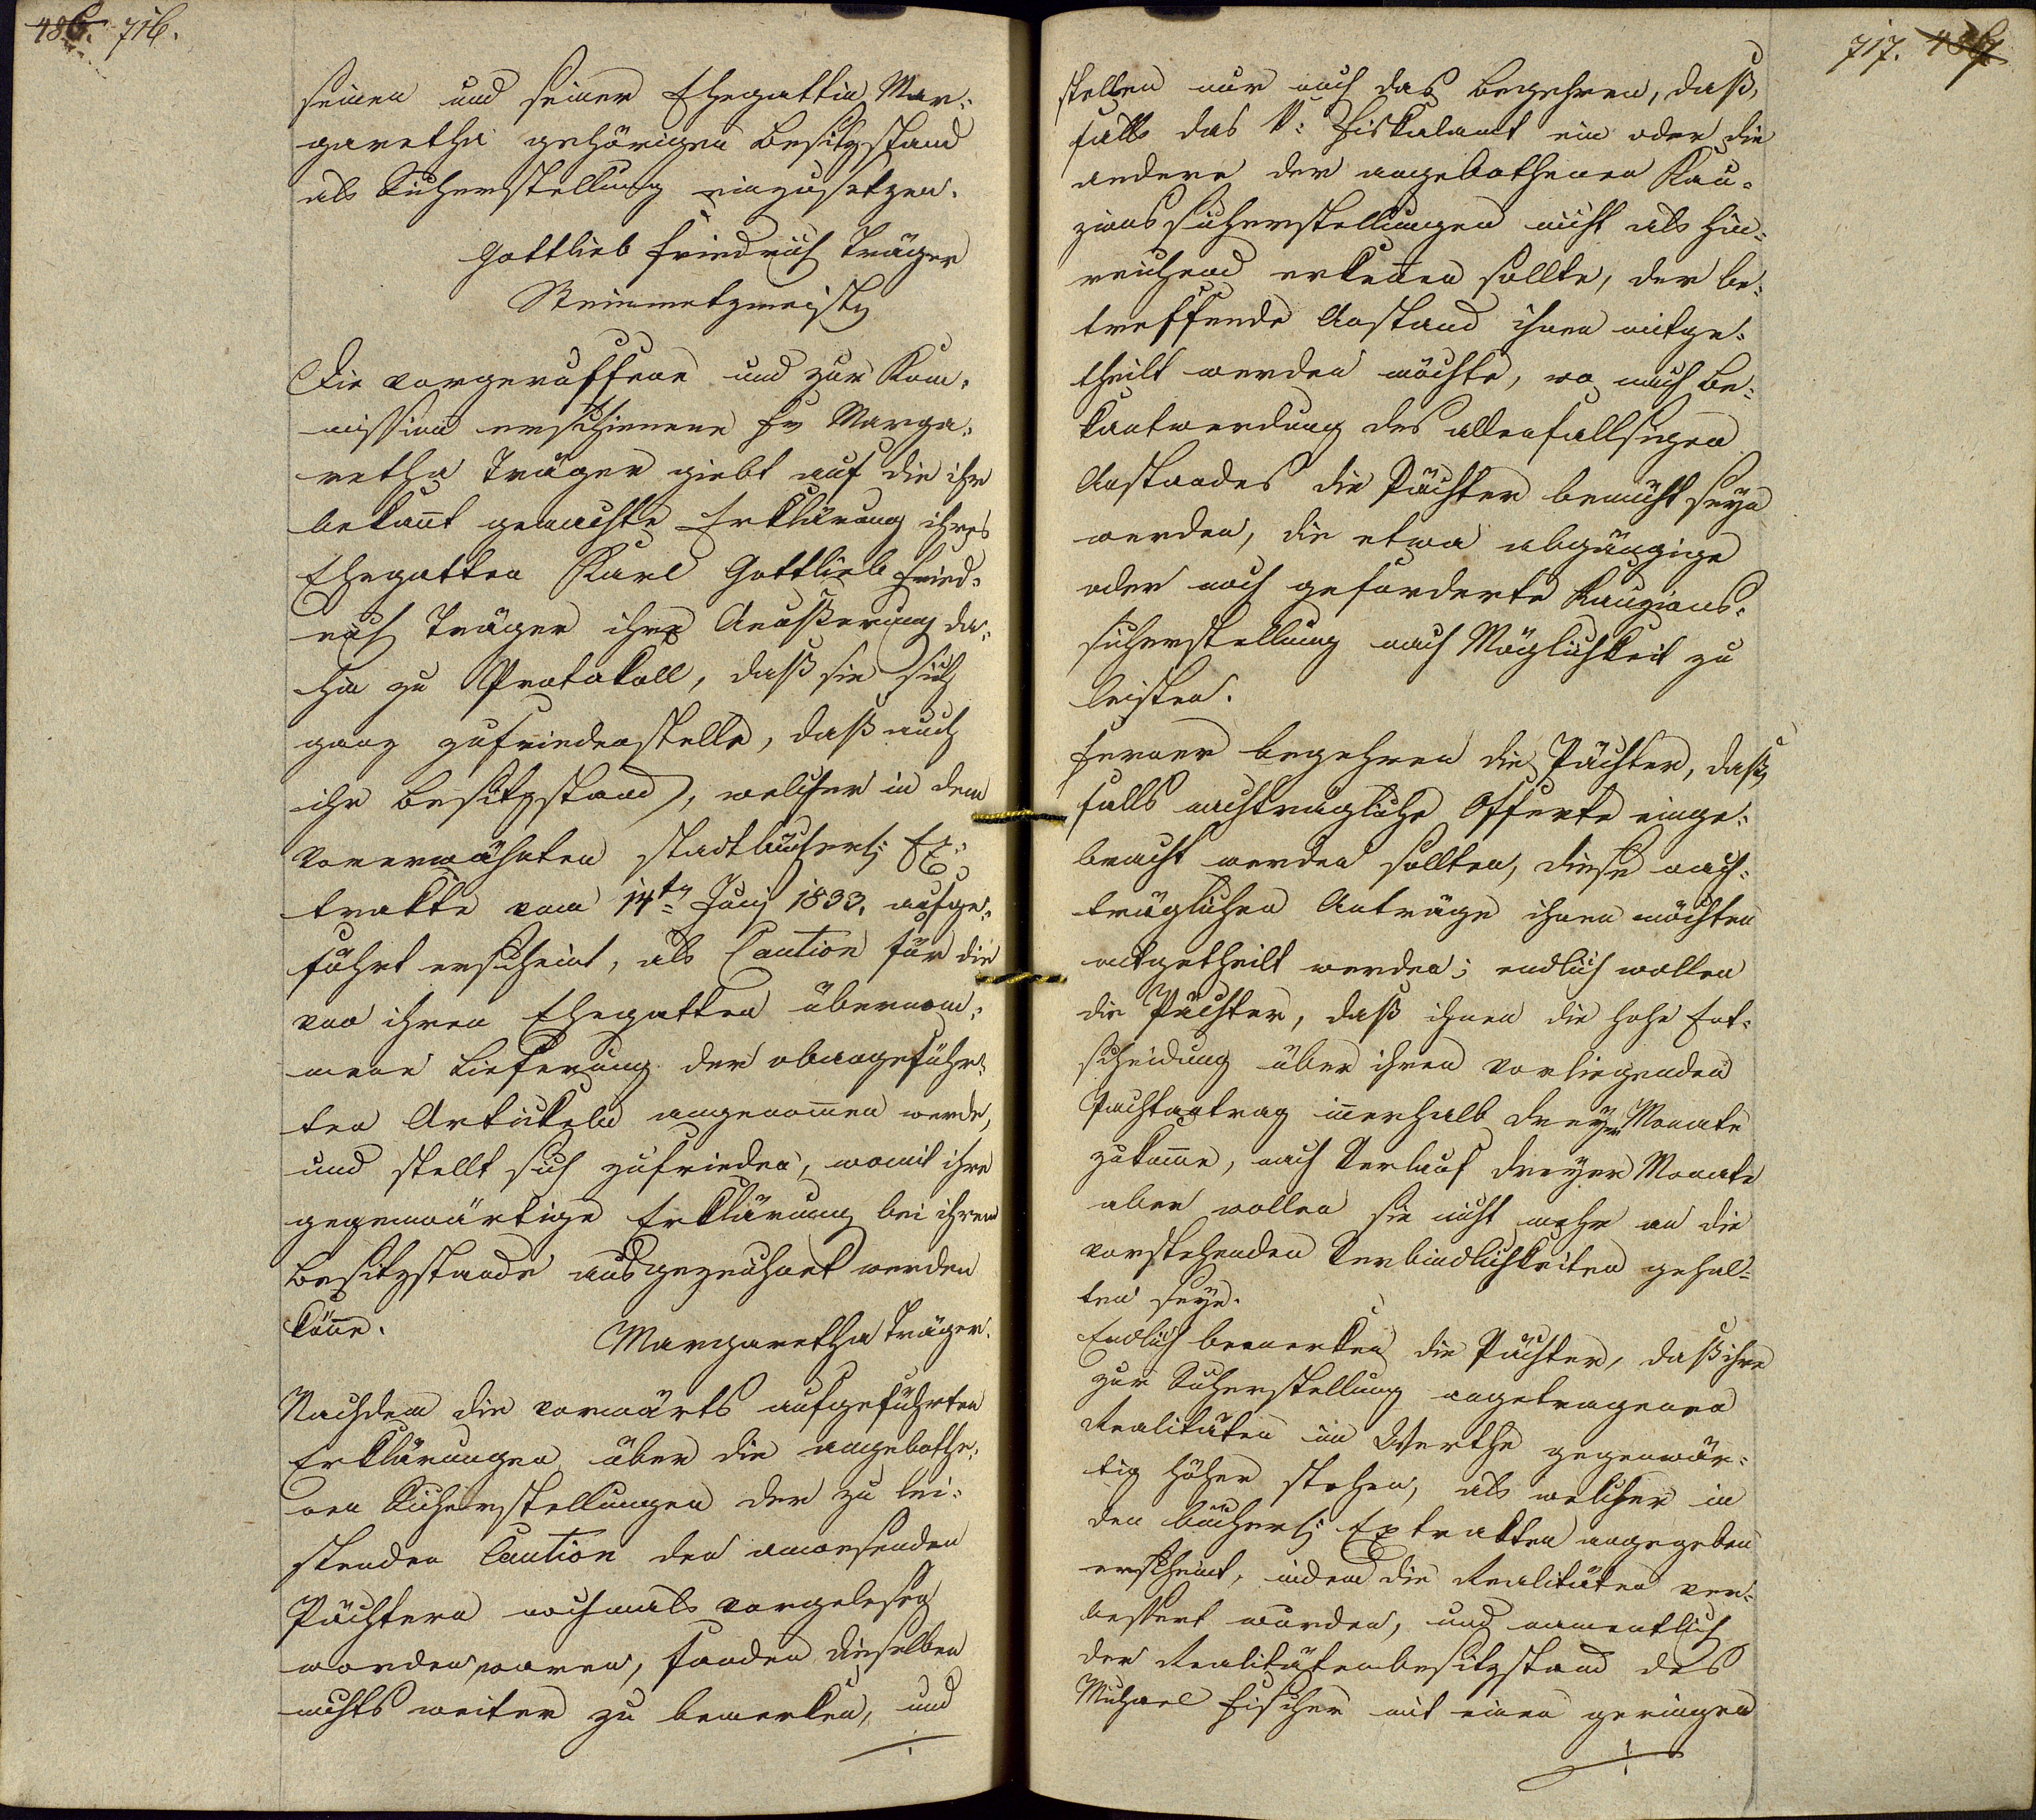 486. 716.
seinen und seiner Ehegattin Mar-
garetha gehörigen Besitzstand
als Sicherstellung einzusetzen.
Gottlieb Friedrich Träger
Steinmetzmeister
Die vorgeruffene und zur Kom-
mission erschienene Fr Marga-
retha Träger giebt auf die ihr
bekañt gemachte Erklärung ihres
Ehegatten Karl Gottlieb Fried-
rich Träger ihre Aeußerung da-
hin zu Protokoll, daß sie sich
ganz zufriedenstelle, daß auch
ihr Besitzstand, welcher in dem
vorerwähnten stadtbücherl: Ex-
trakte vom 14ten Juny 1833. aufge-
führt erscheint, als Caution für die
von ihren Ehegatten übernom-
mene Lieferung der obangeführ-
ten Artickeln angenom̃en werde,
und stellt sich zufrieden, womit ihre
gegenwärtige Erklärung bei ihrem
Besitzstande ausgezeichnet werden
köñe.
Margaretha Träger.
Nachdem die vorwärts aufgeführten
Erklärungen über die angebothe-
nen Sicherstellungen der zu lei-
stenden Caution den anwesenden
Pächtern nochmals vorgelesen
worden waren, fanden dieselben
nichts weiter zu bemerken, und
717. 487
stellen nur noch das Begehren, daß,
falls das k: Fiskalamt ein oder die
andere der angebothenen Kau-
zionssicherstellungen nicht als hin-
reichend erkeñen sollte, der be-
treffende Anstand ihnen mitge-
theilt werden möchte, wo nach Be-
kantwerdung des allenfallsigen
Anstandes die Pächter bemüht seyn
werden, die etwa abgängige
oder noch geforderte Kauzions-
sicherstellung nach Möglichkeit zu
leisten.
Ferner begehren die Pächter, daß,
falls nachträgliche Offerte einge-
bracht werden sollten, diese nach-
träglichen Anträge ihnen möchten
mitgetheilt werden; endlich wollen
die Pächter, daß ihnen die hohe Ent-
scheidung über ihren vorliegenden
Pachtantrag iñerhalb dreyer Monate
zukom̃e, nach Verlauf dreyer Monate
aber wollen sie nicht mehr an die
vorstehenden Verbindlichkeiten gehal-
ten seyn.
Endlich bemerken die Pächter, daß ihre
zur Sicherstellung angetragenen
Realitäten im Werthe gegenwär-
tig höher stehen, als welcher in
den bücherl: Extrakten angegeben
erscheint, indem die Realitäten ver-
bessert wurden, und namentlich
der Realitätenbesitzstand des
Michael Fischer mit einen geringen